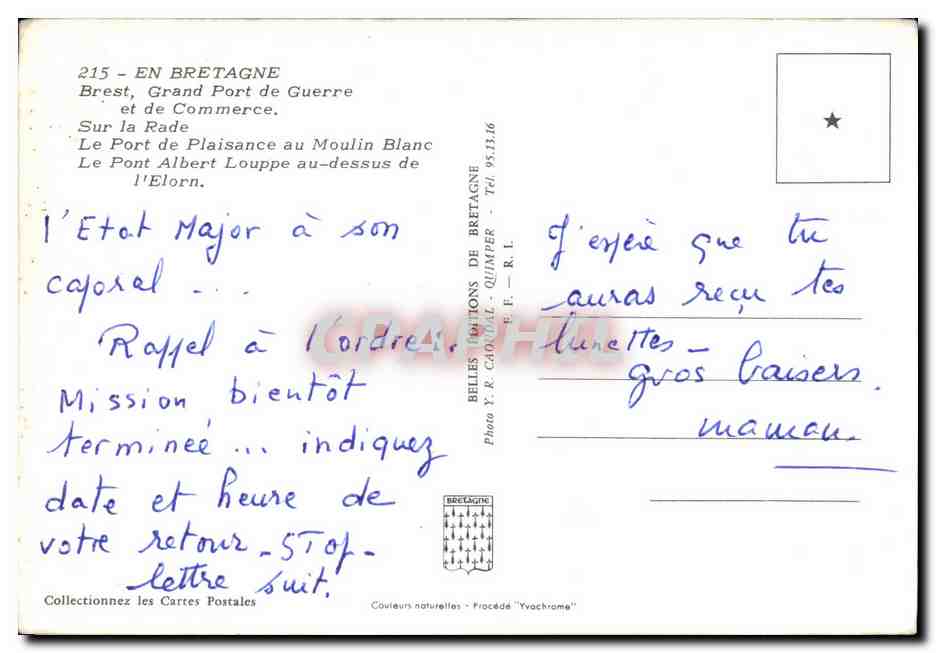 215 - EN BRETAGNE
Brest, Grand Port de Guerre
et de Commerce.
Sur la Rade
Le Port de Plaisance au Moulin Blanc
Le Pont Albert Louppe au-dessus de
l'Elorn.
l'Etat Major à son
caporal ...
Rappel à l'ordre:.
Mission bientôt
terminée ... indiquez
date et heure de
votre retour - STOP -
lettre suit.
Collectionnez les Cartes Postales
BELLES EDITIONS DE BRETAGNE
Photo Y. R. CAOUDAL - QUIMPER - Tél. 95.13.16
E. F. — R. I.
BRETAGNE
Couleurs naturelles - Procédé "Yvachrome"
J'espère que tu
auras reçu tes
lunettes -
gros baisers.
maman.